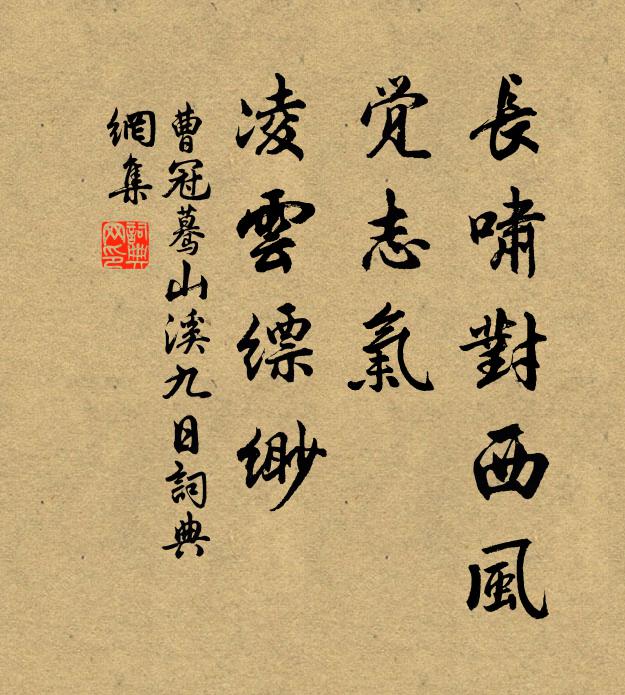 長嘯對西風
覚志氣
凌雲縹緲
曹冠驀山溪九日詞典
網集
詞典
网印